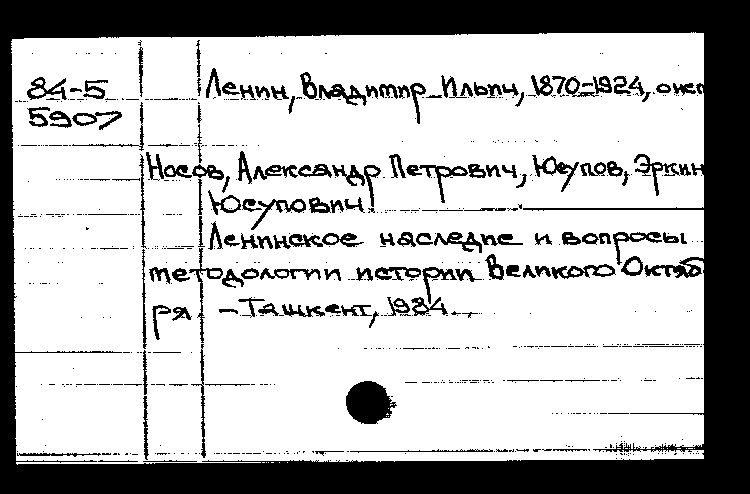 84-5
5907
Ленин, Владимир Ильич, 1870-1924, о нем
Носов, Александр Петрович, Юсупов, Эркин
Юсупович.
Ленинское наследие и вопросы
методологии истории Великого Октяб
ря. - Ташкент, 1984.